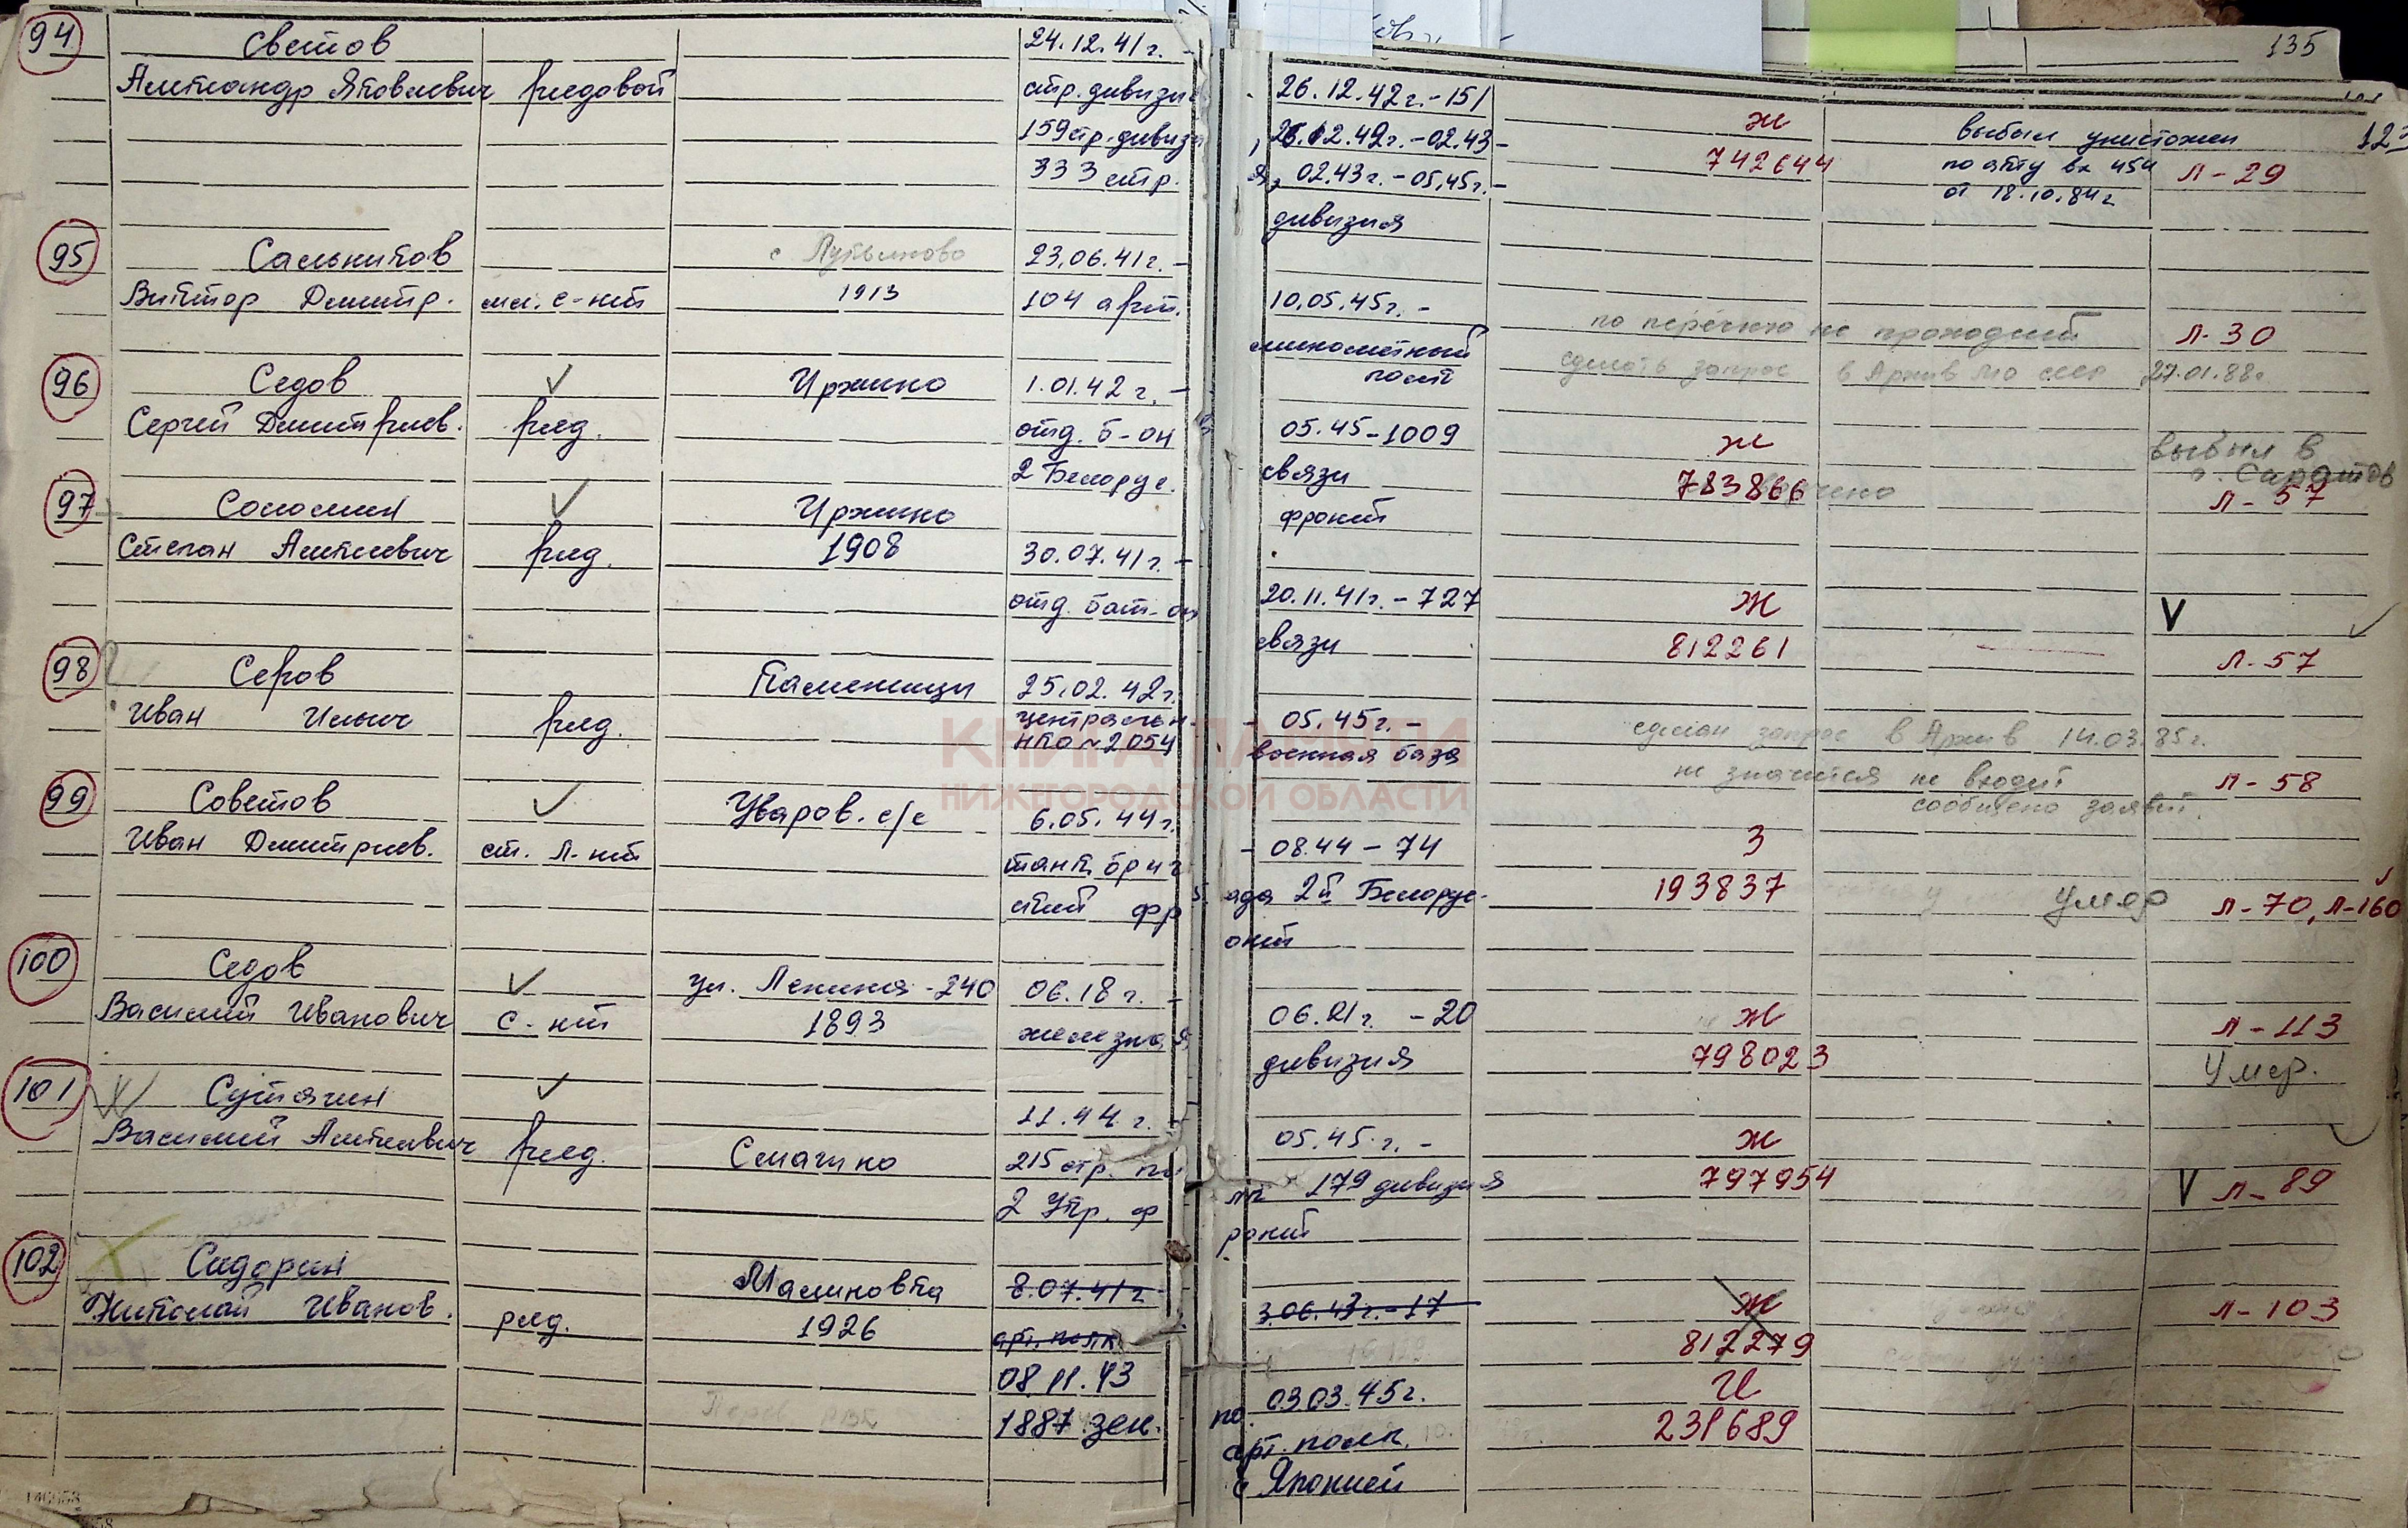 135
94 Светов 24.12.41 г. -
Александр Яковлевич рядовой стр. дивизи 26.12.42 г. - 151
159 стр. дивиз 26.12.42 г. - 02.43 - Ж выбыл уничтожен 123
333 стр. 02.43 г. - 05.45 г. - 742644 по акту вх 454 Л - 29
дивизия от 18.10.84 г
95 Сальников с Лукьяново 23.06.41 г. -
Виктор Дмитр. мл. с-нт 1913 104 арт. 10.05.45 г. -
минометный по перечню не проходит Л - 30
полк сделать запрос в Архив МО СССР 27.01.88 г.
96 Седов V Иржино 1.01.42 г. -
Сергей Дмитриев. ряд. отд. б-он 05.45 - 1009 Ж выбыл в
2 Белорус. связи 783866 г. Саратов
фронт Л - 57
97 Соломин V Иржино
Степан Алексеевич ряд. 1908 30.07.41 г. -
отд. бат-он 20.11.41 г. - 727 Ж V
связи 812261 Л - 57
98 Серов Каменищи 25.02.42 г.
Иван Ильич ряд. центральн. - 05.45 г. - сделан запрос в Архив 14.03.85 г.
НКО №2054 военная база не значится не входит Л - 58
сообщено заявит.
КНИГА ПАМЯТИ
НИЖЕГОРОДСКОЙ ОБЛАСТИ
99 Советов V Уваров. с/с 6.05.44 г.
Иван Дмитриев. ст. л-нт танк. бриг - 08.44 - 74 З
ский фр ада 2й Белорус- 193837 умер Л - 70, Л - 160
онт
100 Седов V ул. Ленина - 240 06.18 г. -
Василий Иванович с-нт 1893 железная 06.21 г. - 20 Ж Л - 113
дивизия 798023 Умер.
101 Сутягин V 11.44 г. -
Василий Алексеевич ряд. Смагино 215 стр. по 05.45 г. - Ж
2 Укр. ф лк 179 дивизия 797954 V Л - 89
ронт
102 Сидорин Малиновка 8.07.41 г
Николай Иванов. ряд. 1926 арт. полк 3.06.43 г. - 17 Ж Л - 103
812279
08.11.43 03.03.45 г. И
1887 зен. арт. полк 231689
с Японией